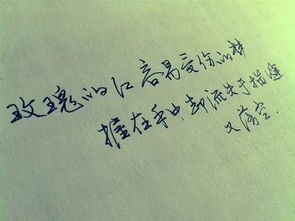 玫瑰的红容易受伤的梦
握在手中却流失于指缝
又落空